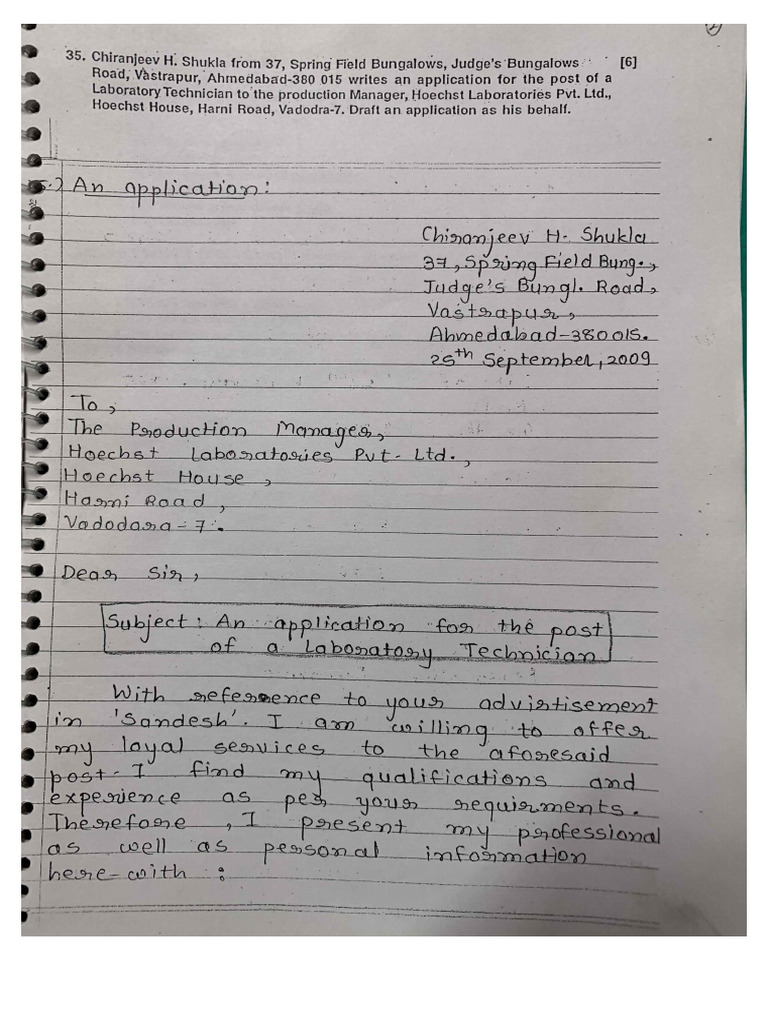 35. Chiranjeev H. Shukla from 37, Spring Field Bungalows, Judge's Bungalows [6]
Road, Vastrapur, Ahmedabad-380 015 writes an application for the post of a
Laboratory Technician to the production Manager, Hoechst Laboratories Pvt. Ltd.,
Hoechst House, Harni Road, Vadodra-7. Draft an application as his behalf.
An application:
Chiranjeev H. Shukla
37, Spring Field Bung.,
Judge's Bungl. Road,
Vastrapur,
Ahmedabad-380015.
25th September, 2009
To,
The Production Manager,
Hoechst Laboratories Pvt. Ltd.,
Hoechst House,
Harni Road,
Vadodara-7.
Dear Sir,
Subject: An application for the post
of a Laboratory Technician
With reference to your advirtisement
in 'Sandesh'. I am willing to offer
my loyal services to the aforesaid
post. I find my qualifications and
experience as per your requirments.
Therefore, I present my professional
as well as personal information
here-with: